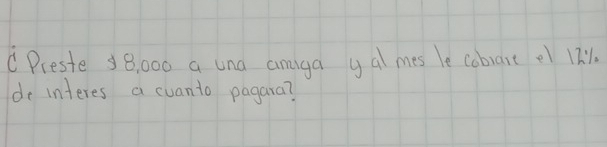 ¿Preste $8,000 a una amiga y al mes le cobrare el 12%
de interes a cuanto pagara?